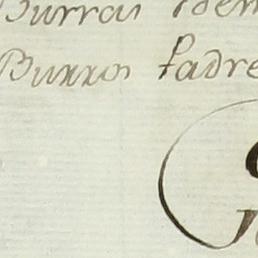 Burras Idem
Burros Padre